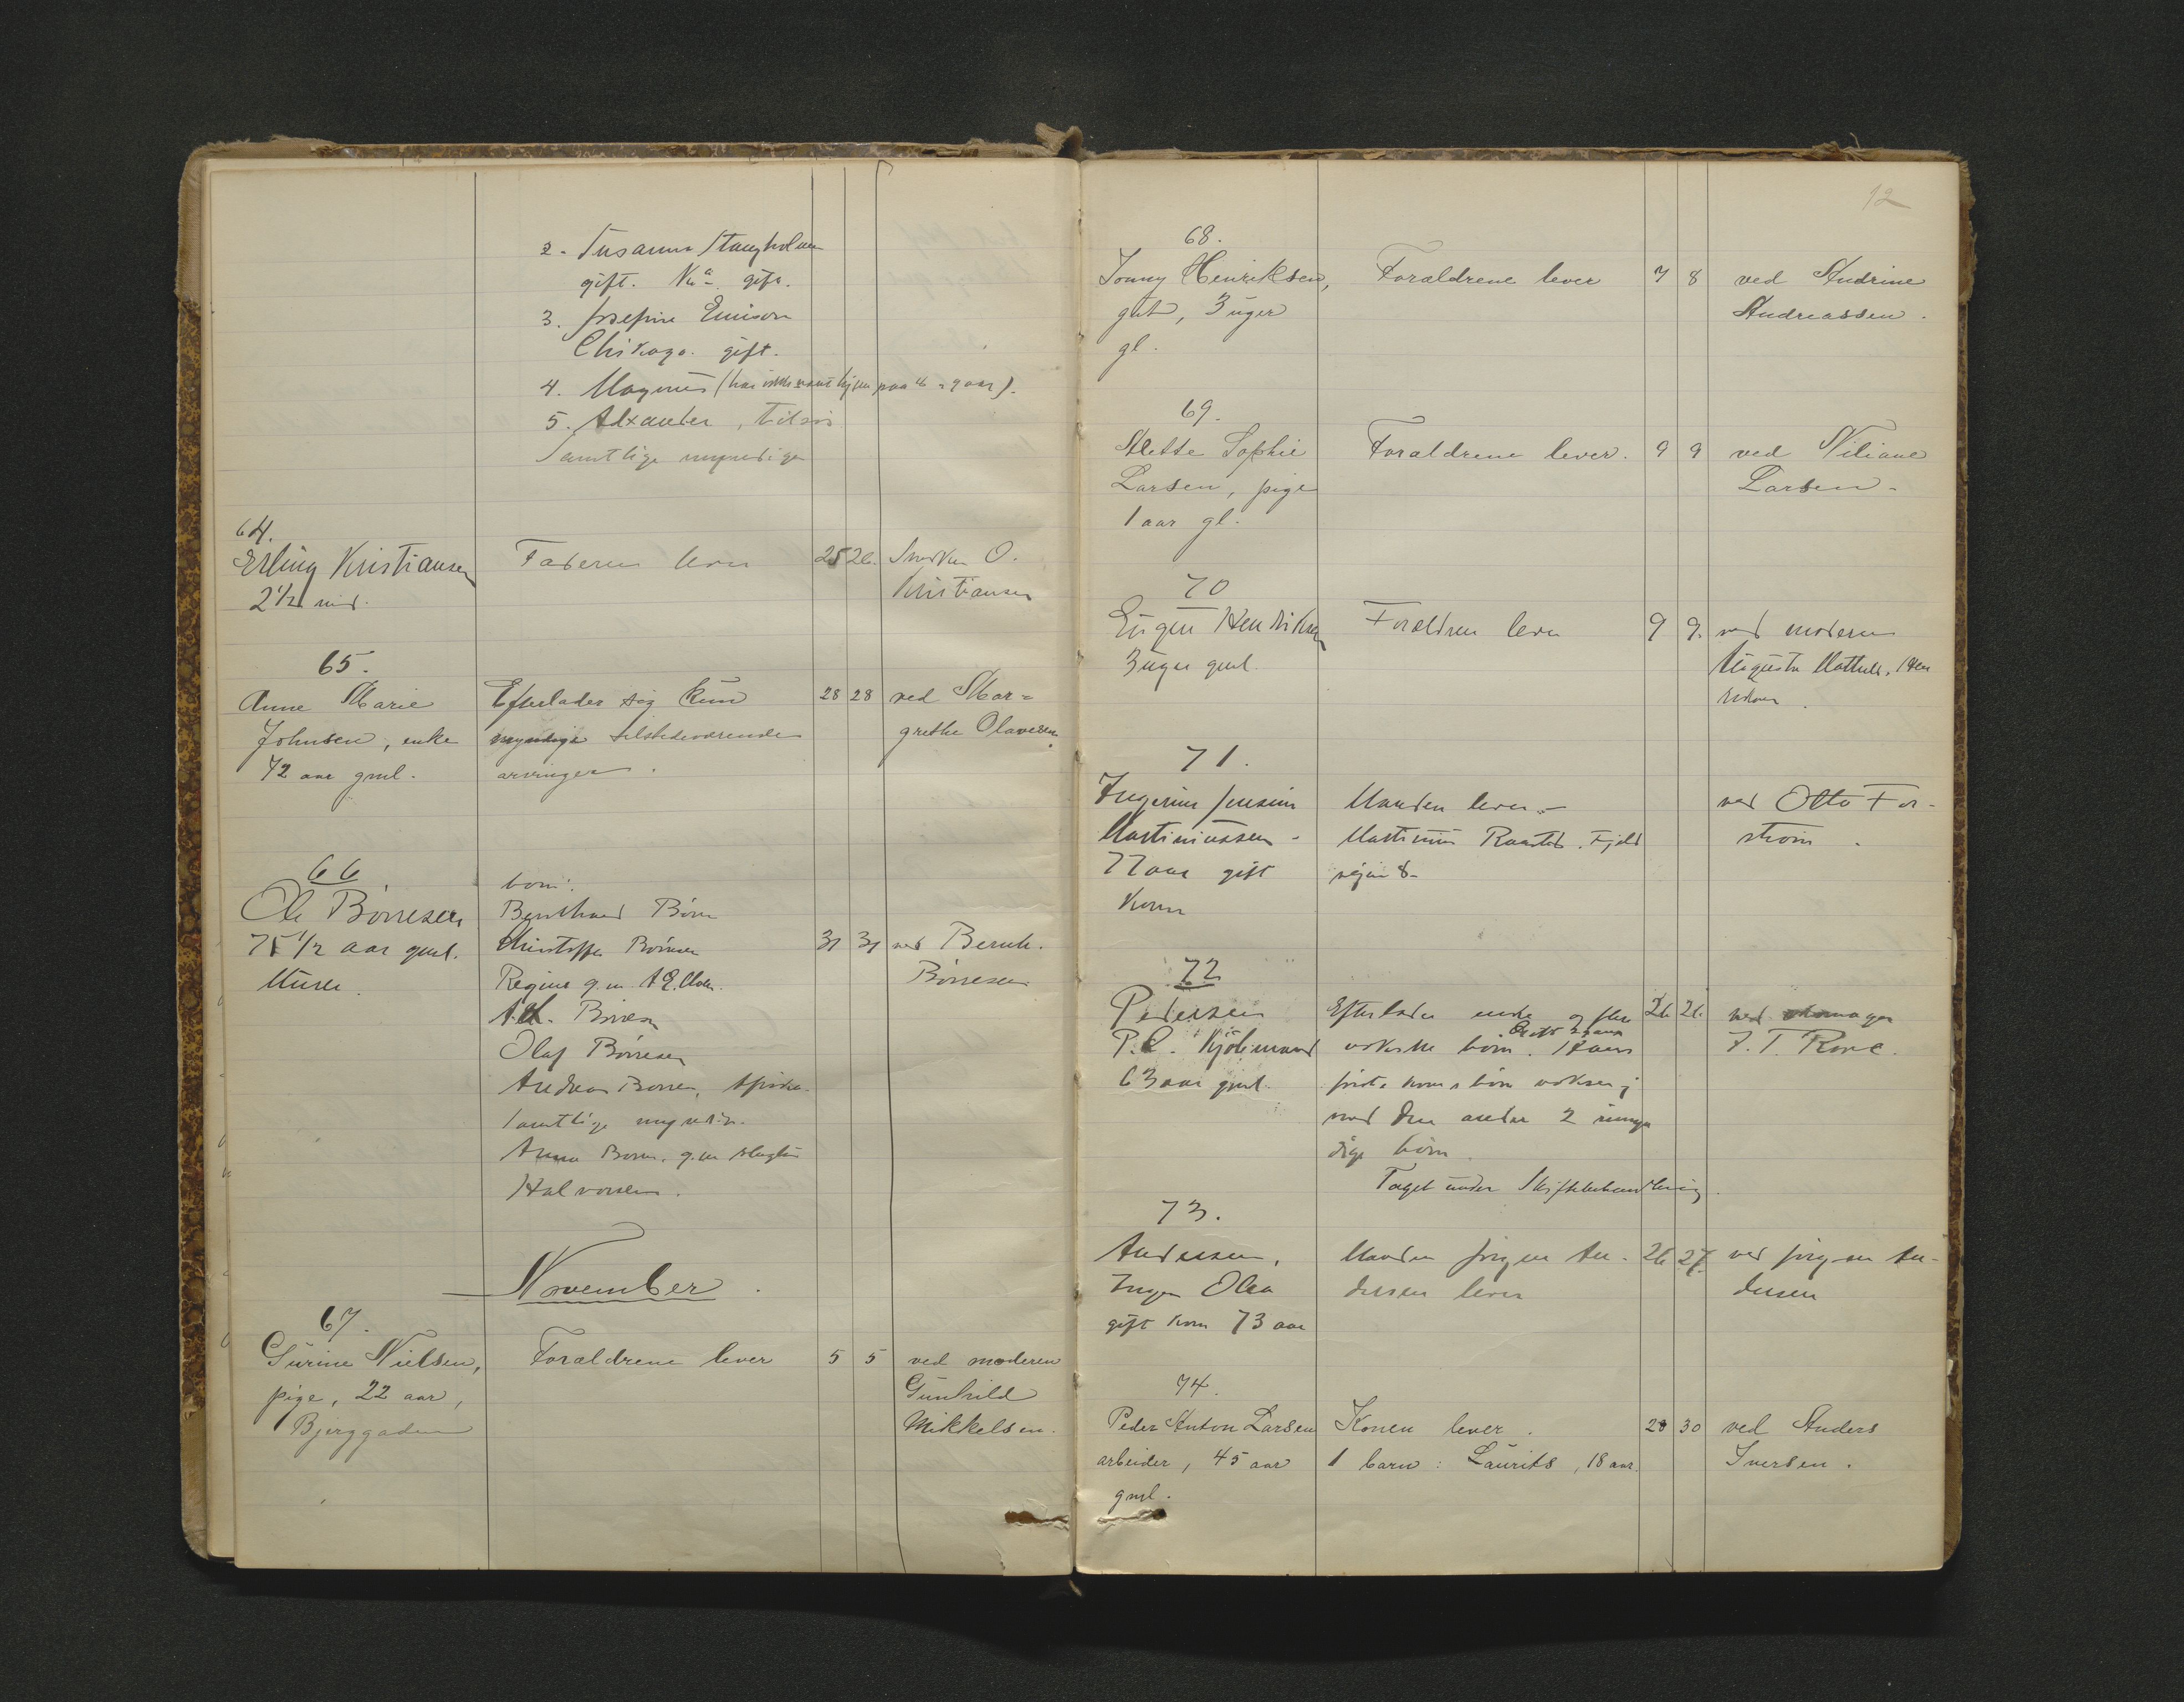 2. Susanna Stangholm
gift. gift.
3. Josefine Emison
Chikago. gift.
4. Magnus (har ikke været hjem paa 8 - 9 aar).
5. Alxander,
Samtlige myndige
64.
Erling Kristiansen
2 1/2 md.
Faderen lever
25 26. Snedker O.
Kristiansen
65.
Anne Marie
Johnsen, enke
72 aar gml.
Efterlader sig kun
myndige tilstedeværende
arvinger.
28 28 ved Mar=
grethe Olavesen.
66
Ole Börresen
75 1/2 aar gml.
Murer.
börn:
Bernhard Börre
Christoffer Börresen
Regine g.m.
A. Börresen
Olaf Börresen
Andreas Börre, Afrika
samtlige myndige.
Anna Börre. g.m.
Halvorsen.
31 31 ved Bernh.
Börresen
November.
67.
Gurine Nielsen,
pige, 22 aar,
Bjerggaden
Forældrene lever
5 5 ved moderen
Gunhild
Mikkelsen.
12
68.
Jonny Henriksen,
gut, 3 uger
gl.
Forældrene lever
7 8 ved Andrine
Andreassen.
69.
Mette Sophie
Larsen, pige
1 aar gl.
Forældrene lever.
9 9 ved Niliane
Larsen.
70
Eugen Hendriksen
3 uger gml.
Forældren lever
9 9. ved moderen
Augusta Mathilde Hen
riksen.
71.
Ingerine Jensine
Martiniussen.
77 aar gift
Kone
Manden lever.-
Martinius Raastad. Fjeld
vejen 8-
ved Otto For-
ström.
72
Pedersen
P. C. Kjöbmand
63 aar gml.
Efterlader enke og flere
voksne börn.
förste kones börn voksen;
med den anden 2 umyn
dige börn.
Taget under Skiftebehandling.
26 26. ved
J. T. Rove.
73.
Andersen,
Inger Olea
gift kone 73 aar
Manden Jörgen An-
dersen lever
26 27. ved Jörgen An-
dersen
74.
Peder Anton Larsen
arbeider, 45 aar
gml.
Konen lever.
1 barn: Laurits, 18 aar.
28 30 ved Anders
Iversen.